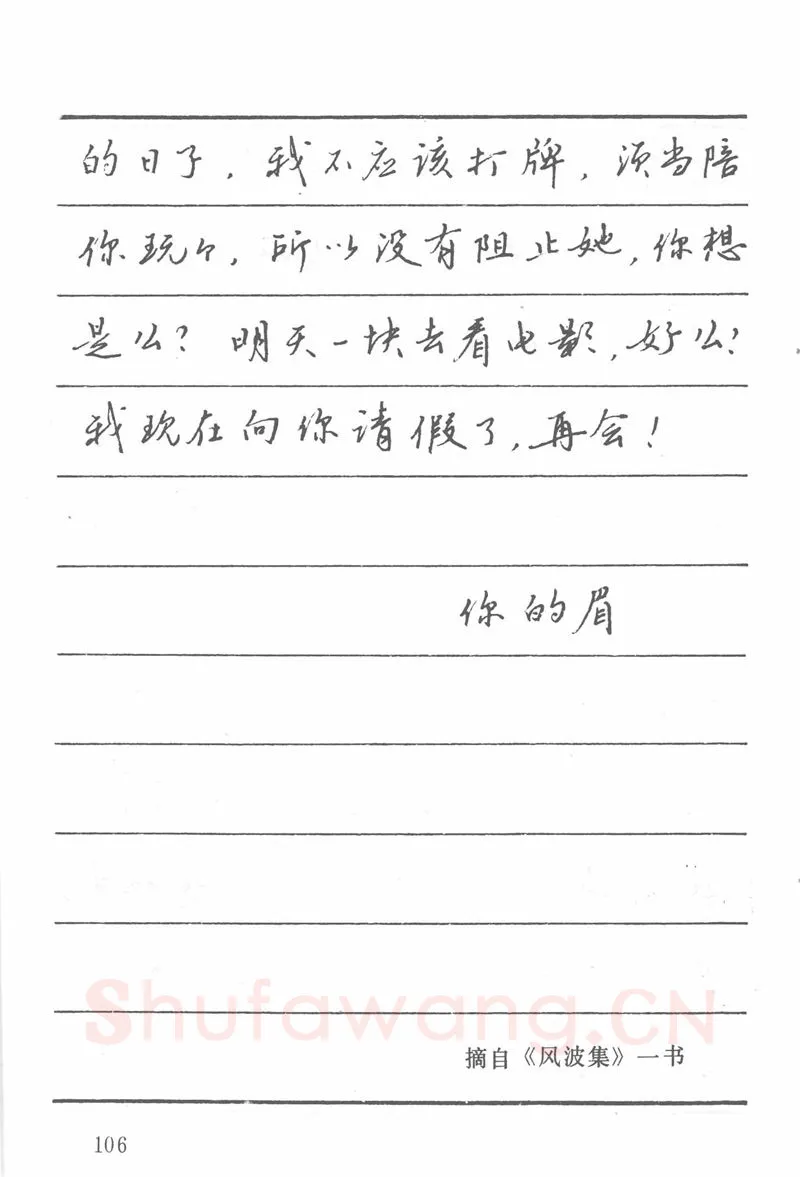 的日子，我不应该打牌，须当陪
你玩々，所以没有阻止她，你想
是么？明天一块去看电影，好么？
我现在向你请假了，再会！
你的眉
Shufawang.CN
摘自《风波集》一书
106